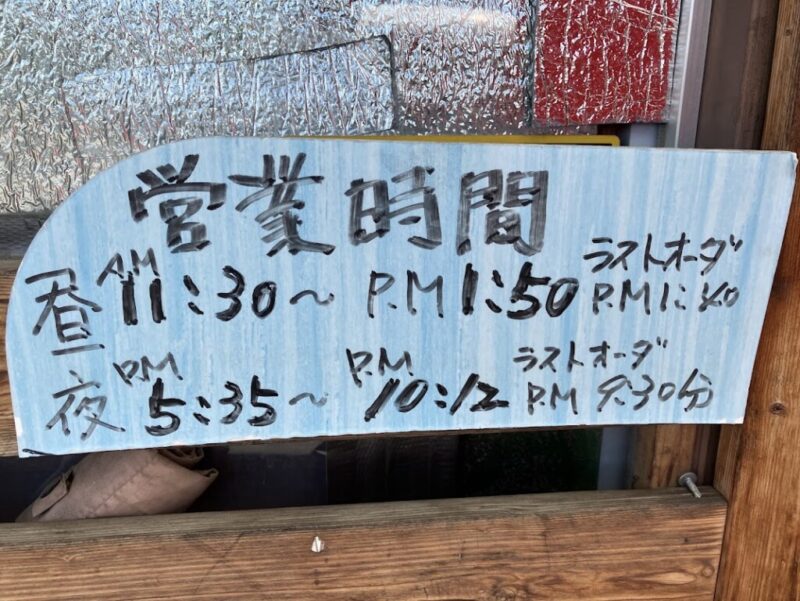 営業時間
昼 AM 11:30〜 P.M 1:50 ラストオーダ P.M 1:40
夜 P.M 5:35〜 P.M 10:12 ラストオーダ P.M 9:30分